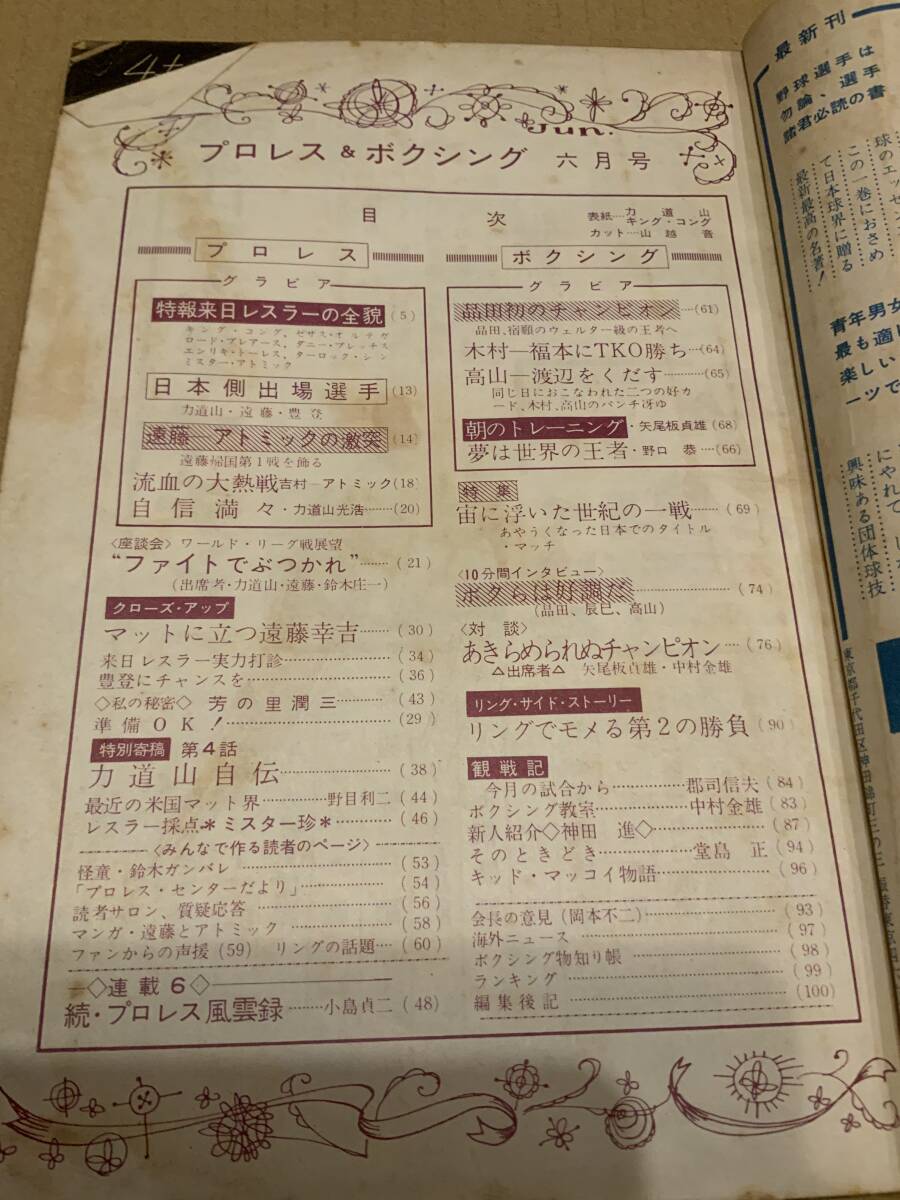 4t
Jun.
プロレス & ボクシング 六月号
目 次
表紙…力道山
キング・コング
カット…山越 音
プロレス
グラビア
特報来日レスラーの全貌 (5)
キング・コング、ゼザス・オルテガ
ロード・ブレアース、ダニー・プレッチス
エンリキ・トーレス、ターロック・シン
ミスター・アトミック
日本側出場選手 (13)
力道山・遠藤・豊登
遠藤 アトミックの激突 (14)
遠藤帰国第1戦を飾る
流血の大熱戦 吉村―アトミック (18)
自信満々・力道山光浩……(20)
〈座談会〉ワールド・リーグ戦展望
“ファイトでぶつかれ”……(21)
(出席者・力道山・遠藤・鈴木庄一)
クローズ・アップ
マットに立つ遠藤幸吉……(30)
来日レスラー実力打診……(34)
豊登にチャンスを……(36)
◇私の秘密◇ 芳の里潤三……(43)
準備OK!……(29)
特別寄稿 第4話
力道山自伝……(38)
最近の米国マット界……野目利二 (44)
レスラー採点*ミスター珍*……(46)
〈みんなで作る読者のページ〉
怪童・鈴木ガンバレ……(53)
「プロレス・センターだより」……(54)
読者サロン、質疑応答……(56)
マンガ・遠藤とアトミック……(58)
ファンからの声援 (59) リングの話題…(60)
◇連載6◇
続・プロレス風雲録……小島貞二 (48)
ボクシング
グラビア
品田初のチャンピオン……(61)
品田、宿願のウェルター級の王者へ
木村―福本にTKO勝ち…(64)
高山―渡辺をくだす……(65)
同じ日におこなわれた二つの好カ
ード、木村、高山のパンチ冴ゆ
朝のトレーニング・矢尾板貞雄 (68)
夢は世界の王者・野口 恭…(66)
特集
宙に浮いた世紀の一戦……(69)
あやうくなった日本でのタイトル
・マッチ
〈10分間インタビュー〉
ボクらは好調だ……(74)
(品田、辰巳、高山)
〈対談〉
あきらめられぬチャンピオン…(76)
△出席者△ 矢尾板貞雄・中村金雄
リング・サイド・ストーリー
リングでモメる第2の勝負 (90)
観戦記
今月の試合から……郡司信夫 (84)
ボクシング教室……中村金雄 (83)
新人紹介◇神田 進◇……(87)
そのときどき……堂島 正 (94)
キッド・マッコイ物語……(96)
会長の意見(岡本不二)……(93)
海外ニュース……(97)
ボクシング物知り帳……(98)
ランキング……(99)
編集後記……(100)
最新刊
野球選手は
勿論、選手
諸君必読の書
球のエッセン
この一巻におさめ
て日本球界に贈る
最新最高の名著!
青年男女
最も適
楽しい
ーツで
にやれて
興味ある団体球技